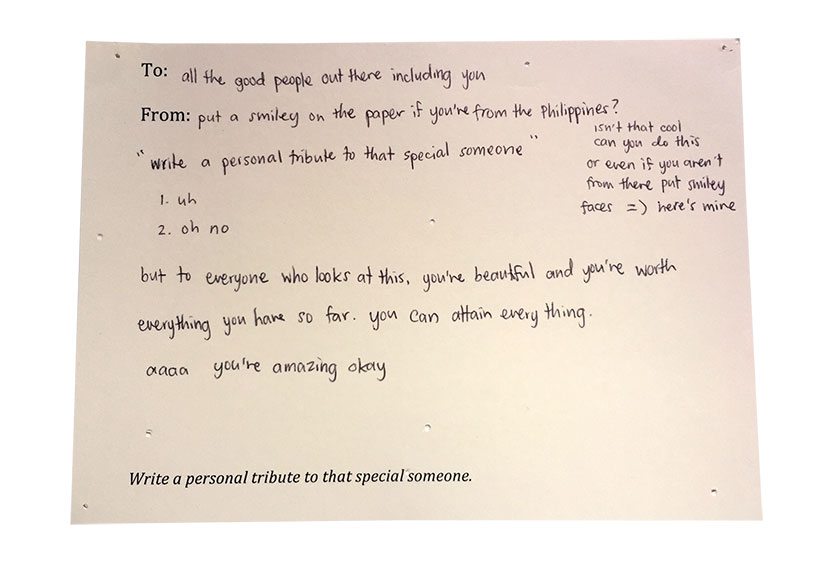 To: all the good people out there including you
From: put a smiley on the paper if you're from the Philippines?
isn't that cool
can you do this
or even if you aren't
from there put smiley
faces =) here's mine
"write a personal tribute to that special someone"
1. uh
2. oh no
but to everyone who looks at this, you're beautiful and you're worth
everything you have so far. you can attain every thing.
aaaa you're amazing okay
Write a personal tribute to that special someone.